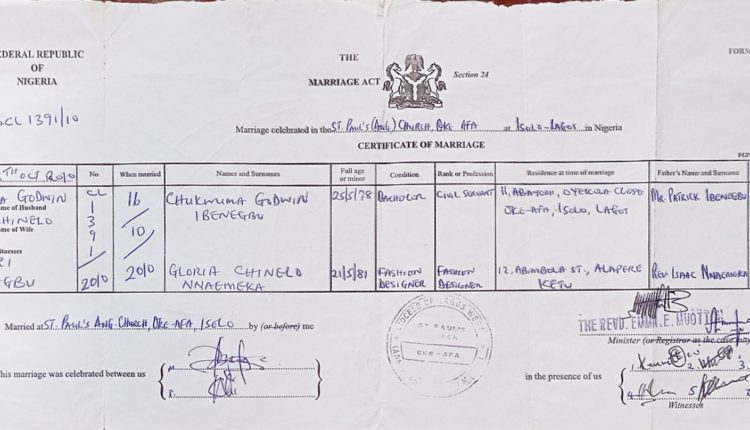 EDERAL REPUBLIC
OF
NIGERIA
CL 1391/10
THE
MARRIAGE ACT
Section 24
FORM
Marriage celebrated in the ST. PAUL'S (ANG) CHURCH, OKE AFA at ISOLO-LAGOS in Nigeria
CERTIFICATE OF MARRIAGE
TH OCT 2010
No.
When married
Names and Surnames
Full age or minor
Condition
Rank or Profession
Residence at time of marriage
Father's Name and Surname
A GODWIN
me of Husband
HINELO
me of Wife
itnesses
GBU
CL
1
3
9
1
2010
16
10
2010
CHUKWUMA GODWIN
IBENEGBU
25/5/78
BACHELOR
CIVIL SERVANT
11, ABAYOMI, OYEKOLA CLOSE
OKE-AFA, ISOLO, LAGOS
MR. PATRICK IBENEGBU
GLORIA CHINELO
NNAEMEKA
21/5/81
FASHION
DESIGNER
FASHION
DESIGNER
12, ABIMBOLA ST., ALAPERE
KETU
REV. ISAAC NNAEMEKA
Married at ST. PAUL'S ANG. CHURCH, OKE-AFA, ISOLO by (or before) me
ST PAUL'S
OKE-AFA
THE REVD. EMMA. E.
Minister (or Registrar as the case
his marriage was celebrated between us
in the presence of us
1.
2
3.
5
Witnesses